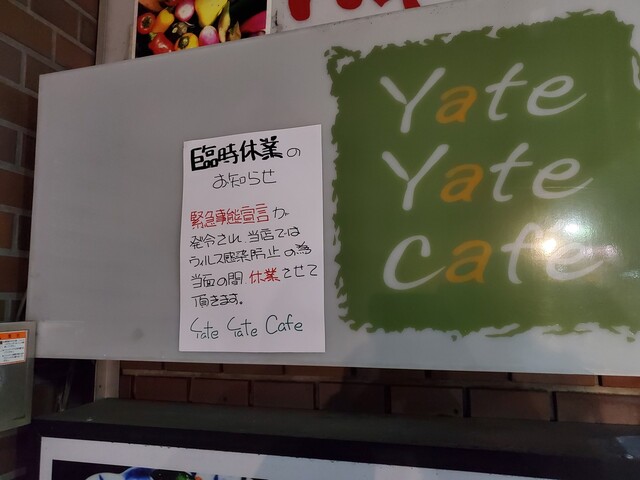 臨時休業の
お知らせ
緊急事態宣言が
発令され、当店では
ウィルス感染防止の為
当面の間 休業させて
頂きます。
Yate Yate Cafe
Yate
Yate
Cafe